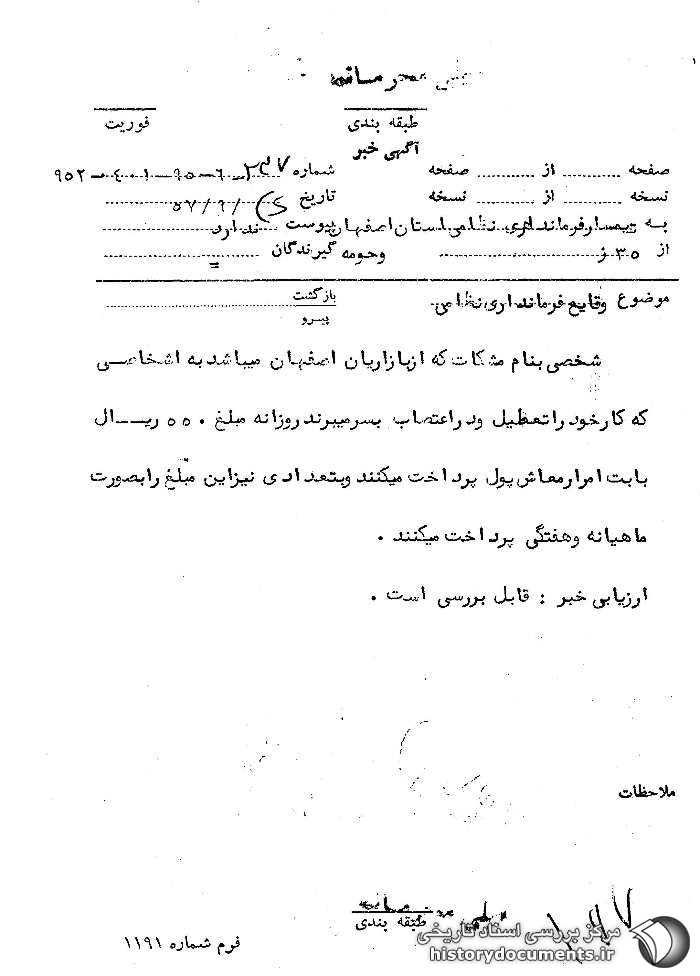 خیلی محرمانه
طبقه بندی
فوریت
آگهی خبر
صفحه از صفحه
شماره ۲۳۷-۶-۹۵-۱-۴-۹۵۲
نسخه از نسخه
تاریخ ۵۷/۹/
به تیمسار فرمانداری نظامی استان اصفهان
پیوست ندارد
از ۳۵ ز
وحومه گیرندگان
موضوع وقایع فرمانداری نظامی.
بازگشت
پیرو
شخصی بنام مشکات که از بازاریان اصفهان میباشد به اشخاصی
که کار خود را تعطیل ودر اعتصاب بسر میبرند روزانه مبلغ ۵۵۰ ریـــال
بابت امرار معاش پول پرداخت میکنند وبتعدادی نیز این مبلغ را بصورت
ماهیانه وهفتگی پرداخت میکنند .
ارزیابی خبر : قابل بررسی است .
ملاحظات
خیلی محرمانه
طبقه بندی
فرم شماره ۱۱۹۱
مرکز بررسی اسناد تاریخی
historydocuments.ir